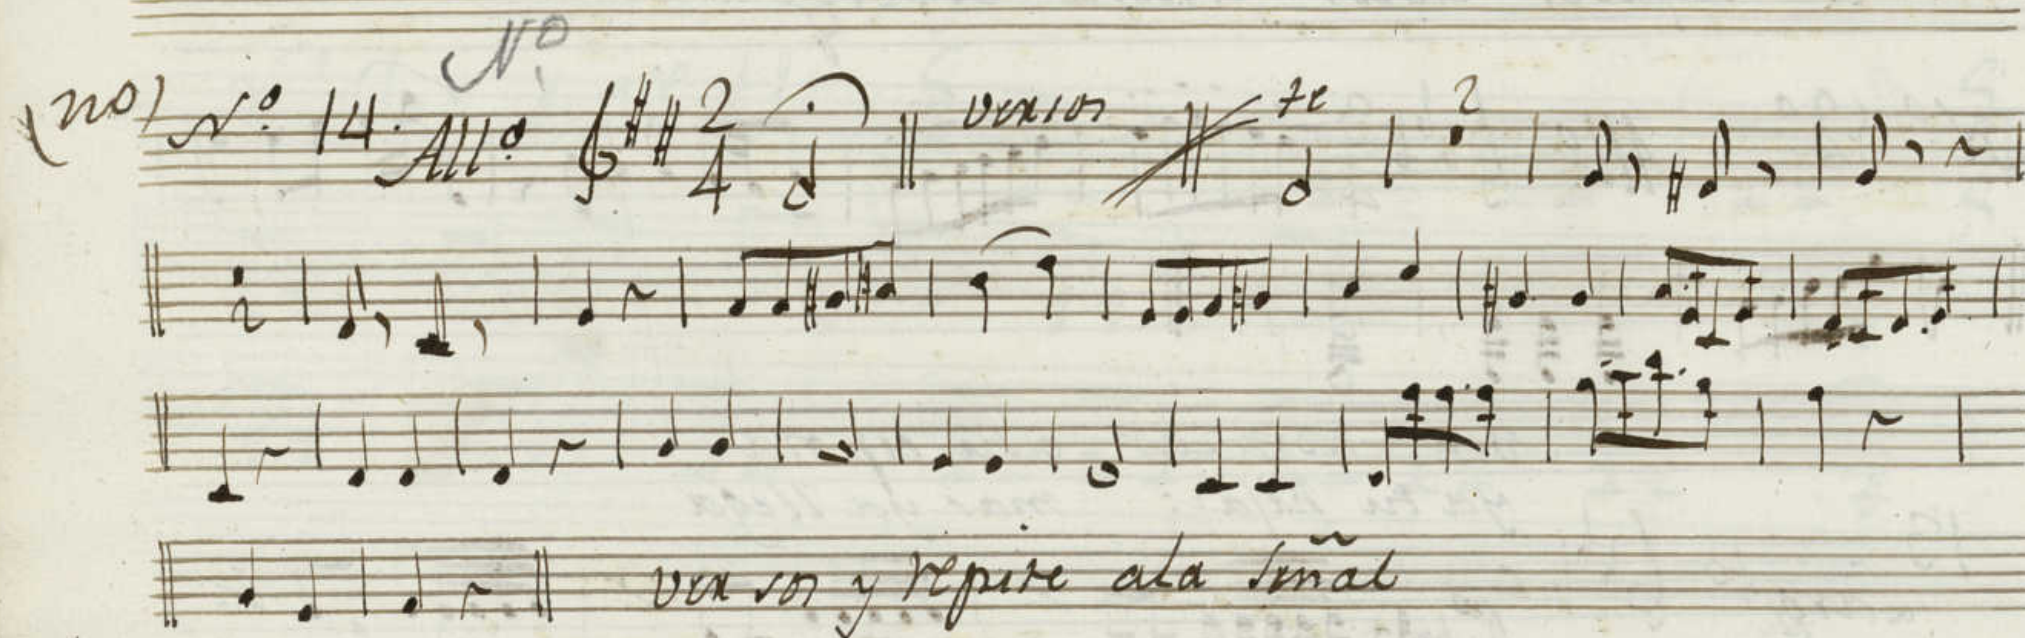 Nº
(no) Nº 14. Allº 2 4 versos te 2
2
versos y repite ala señal